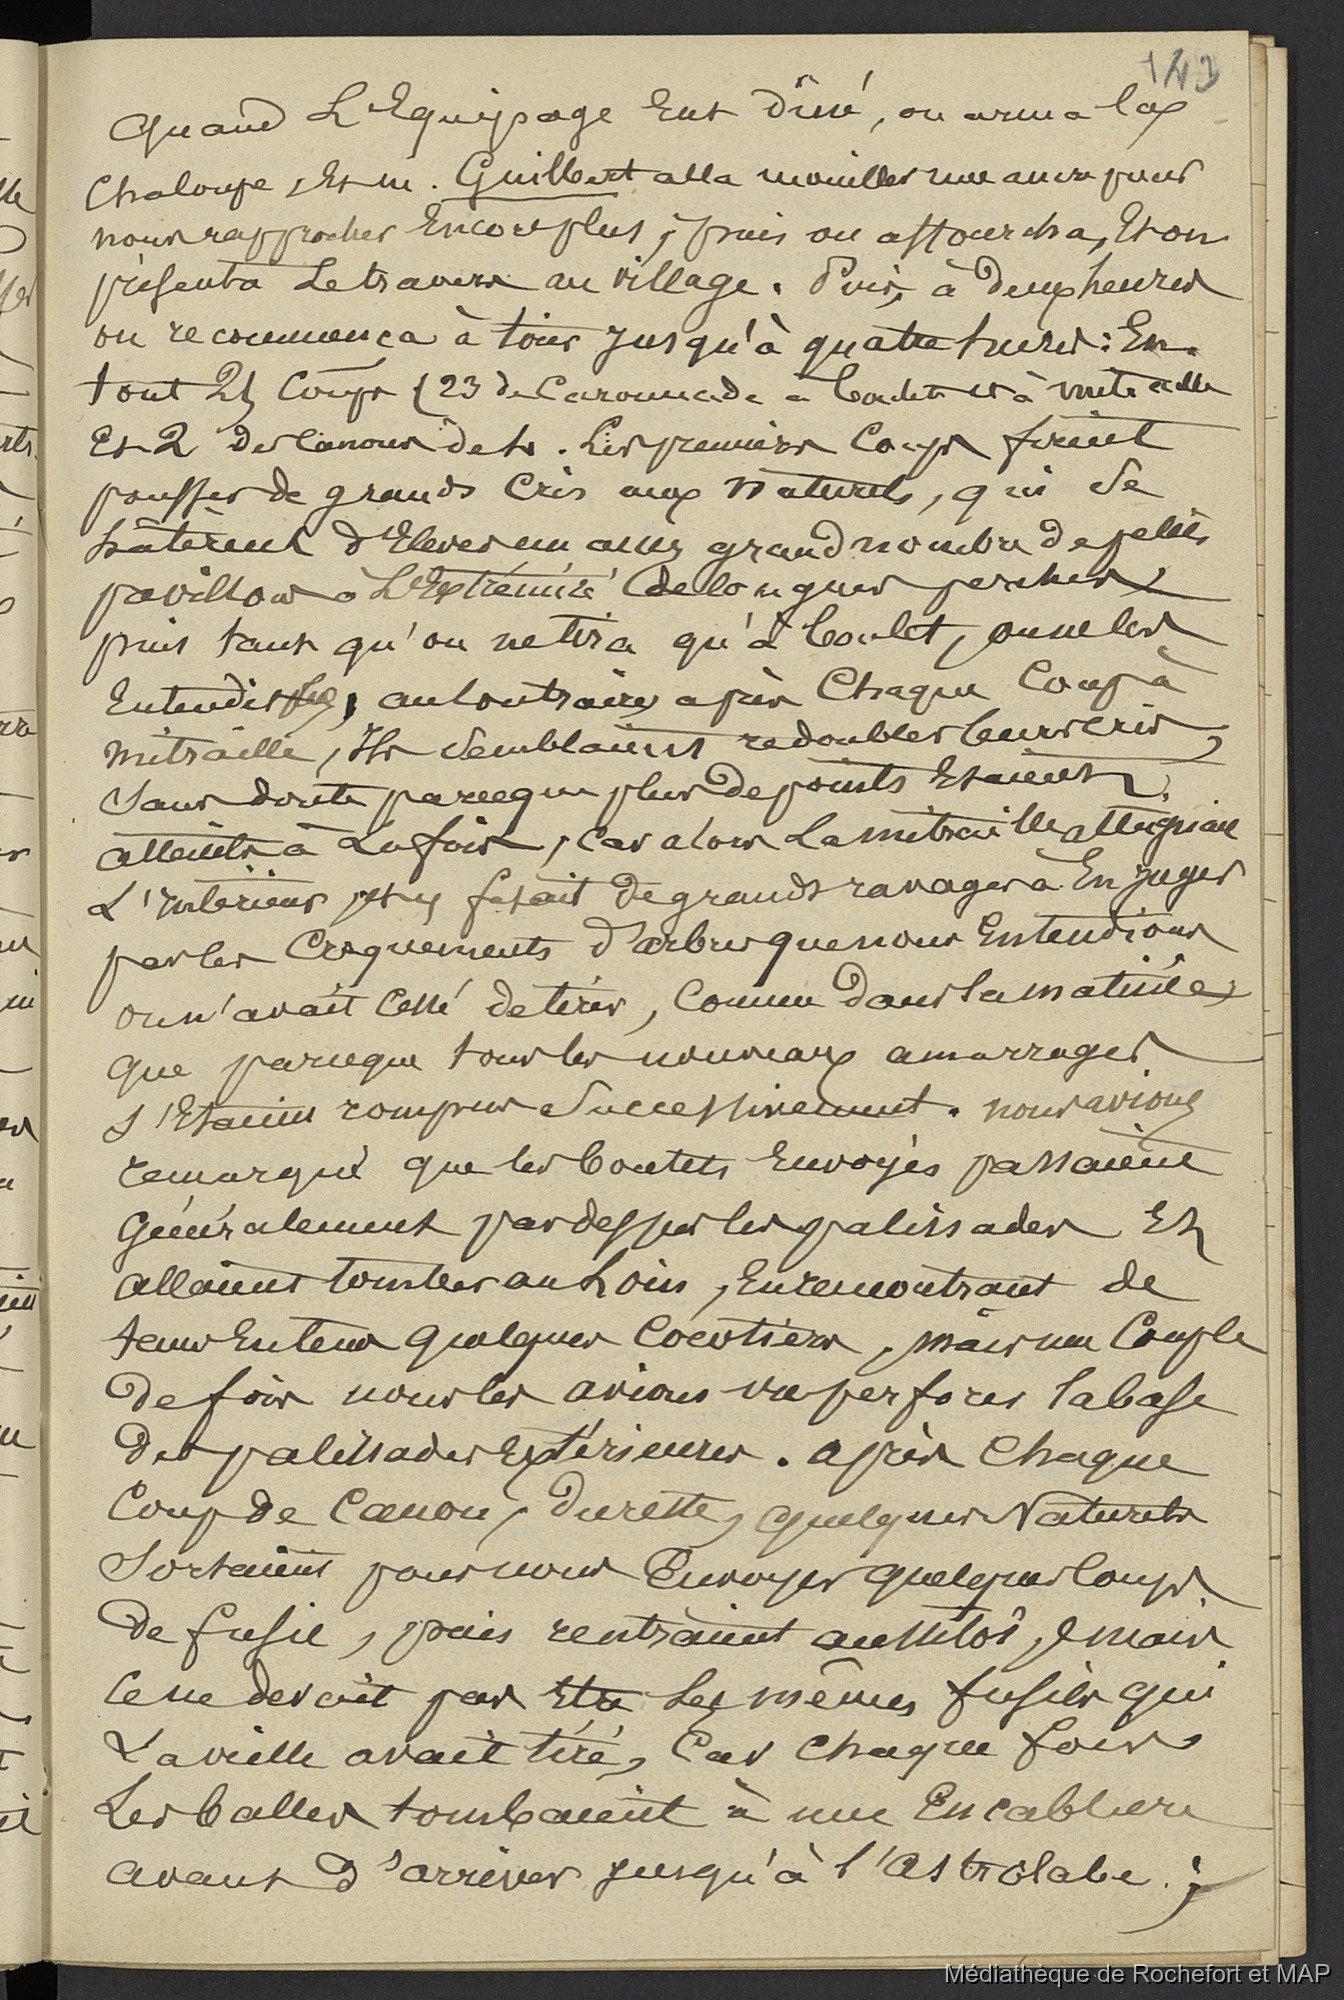 143
Quand L'Equipage Eut dîné, on arma la
Chaloupe, Et m. Guilbert alla mouiller une ancre pour
nous rapprocher Encore plus; puis on affourcha, Et on
présenta Le travers au village. Puis, à deux heures
on recommença à tirer jusqu'à quatre heures: En
tout 25 Coups (23 de Caronnade à boulet et à mitraille
Et 2 des Canons de . Les premiers Coups firent
pousser de grands Cris aux Naturels, qui se
hâtèrent d'Elever un assez grand nombre de petits
pavillons à L'Extrémité de longues perches;
puis tant qu'on ne tira qu'à boulet, on ne les
Entendit plus; au Contraire, après Chaque Coup à
mitraille, Ils semblaient redoubler leurs Cris,
sans doute parceque plus de points Etaient
atteints à La fois, Car alors La mitraille atteignait
L'Intérieur, Et y fesait de grands ravages à En juger
par les Craquements d'arbres que nous Entendions
on n'avait Cessé de tirer, Comme dans la matinée,
que parceque tous les nouveaux amarrages
s'Etaient rompus Successivement. nous avions
remarqué que les boulets Envoyés passaient
Généralement par dessus les palissades Et
allaient tomber au Loin, En rencontrant de
tems En tems quelques Cocotiers, mais une Couple
de fois nous les avions vu perforer la base
des palissades Extérieures. après Chaque
Coup de Canon, du reste, quelques Naturels
Sortaient pour nous Envoyer quelques Coups
de fusil, puis rentraient aussitôt, mais
Ce ne devait pas Etre Les mêmes fusils qui
La veille avait tiré, Car Chaque fois
Les balles tombaient à une Encablure
avant d'arriver jusqu'à l'Astrolabe;
Médiathèque de Rochefort et MAP